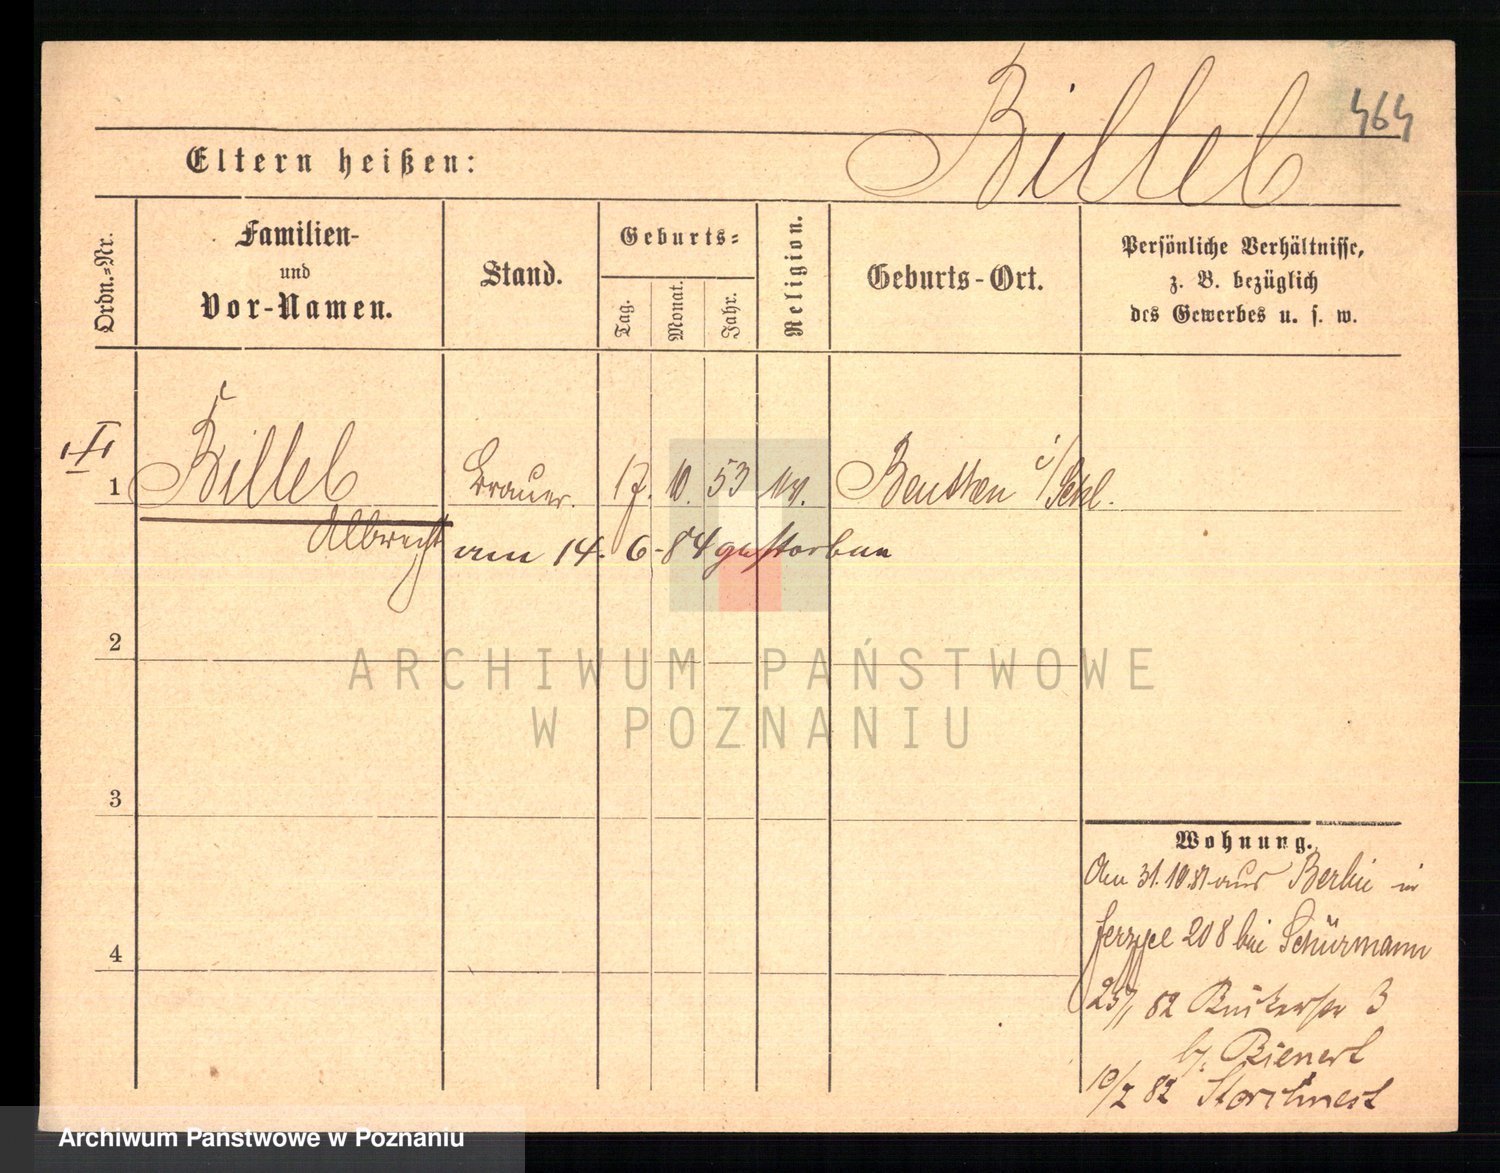 464
Billeb
Eltern heißen:
Ordn.-Nr.
Familien-
und
Vor-Namen.
Stand.
Geburts-
Tag.
Monat.
Jahr.
Religion.
Geburts-Ort.
Persönliche Verhältnisse,
z. B. bezüglich
des Gewerbes u. s. w.
1 Billeb Brauer. 17. 10. 53 Beuthen i/Schl.
Albrecht am 14. 6. 84 gestorben
2
3
4
Wohnung.
Am 31.10.81 aus Berlin in
208 bei Schürmann
82 3
b/. Bienert
82 Storchnest
ARCHIWUM PAŃSTWOWE
W POZNANIU
Archiwum Państwowe w Poznaniu